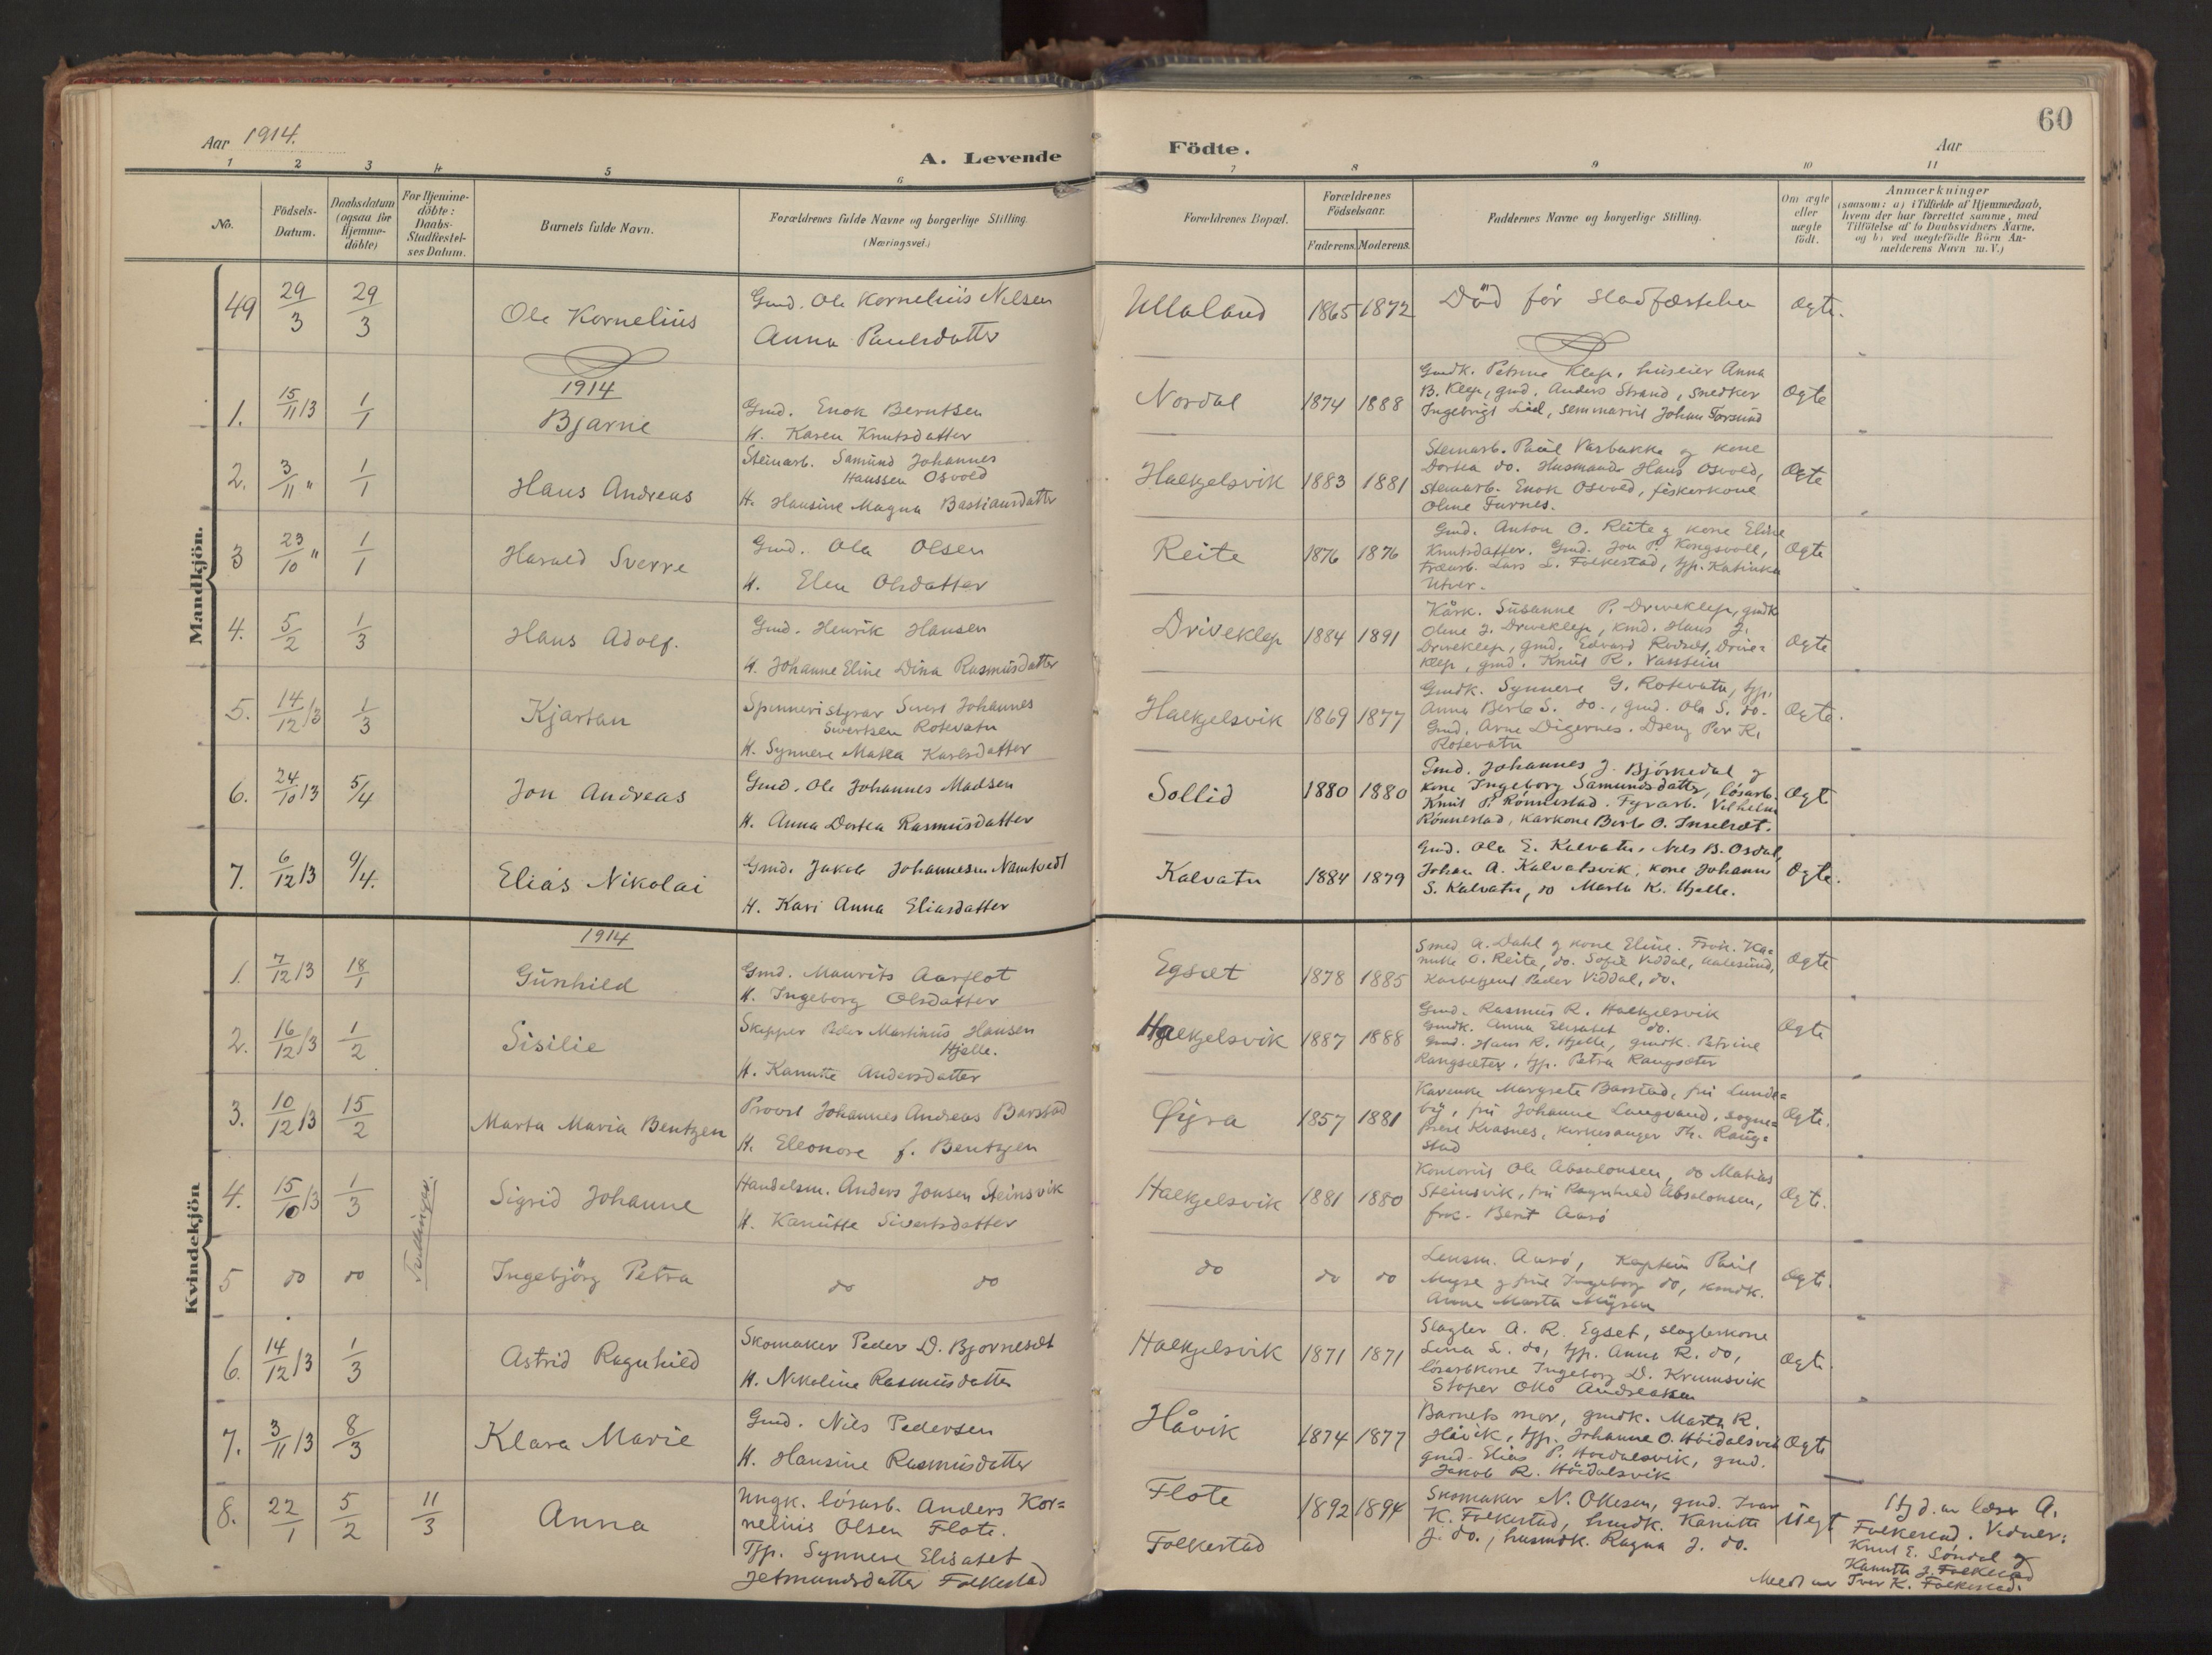 Aar 1914.
A. Levende
Födte.
Aar
60
1 2 3 4 5 6 7 8 9 10 11
No.
Födsels-
Datum.
Daabsdatum
(ogsaa for
Hjemme-
döbte)
For Hjemme-
döbte:
Daabs-
Stadfæstel-
ses Datum.
Barnets fulde Navn.
Forældrenes fulde Navne og borgerlige Stilling.
(Næringsvei.)
Forældrenes Bopæl.
Forældrenes
Födselsaar.
Faderens. Moderens.
Faddernes Navne og borgerlige Stilling.
Om ægte
eller
uægte
födt.
Anmærkninger
(saasom: a) i Tilfælde af Hjemmedaab,
hvem der har forrettet samme, med
Tilföielse af to Daabsvidners Navne,
og b) ved uægtefödte Börn An-
melderens Navn m. V.)
Mandkjön.
49 29/3 29/3 Ole Kornelius
Gmd. Ole Kornelius Nelsen
Anna Paulsdatter
Ullaland 1865 1872 Död för stadfæstelse Ogte.
1914
1. 15/11 13 1/1 Bjarne
Gmd. Enok Berntsen
H. Karen Knutsdatter
Nordal 1874 1888
Gmdk. Petrine Klep, huseier Anna
B. Klep, gmd. Anders Strand, snedker
Ingebrigt Lid, seminarist Johan Torsund
Ogte
2. 3/11 " 1/1 Hans Andreas
Steinarb. Samund Johannes
Hanssen Osvold
H. Hansine Magna Bastiansdatter
Halkjelsvik 1883 1881
Steinarb. Paul Vasbakke og kone
Dortea do. Husmand Hans Osvold,
steinarb. Enok Osvold, fiskerkone
Oline Furnes.
Ogte
3 23/10 " 1/1 Harald Sverre
Gmd. Ola Olsen
H. Elen Olsdatter
Reite 1876 1876
Gmd. Anton O. Reite og kone Eline
Knutsdatter. Gmd. Jon P. Kongsvoll,
træarb. Lars L. Folkestad, tjp. Katinka
Utver.
Ogte
4. 5/2 1/3 Hans Adolf.
Gmd. Henrik Hansen
H. Johanne Eline Dina Rasmusdatter
Driveklep 1884 1891
Kårk. Susanne P. Driveklep, gmdk
Oline J. Driveklep, kmd. Hans J.
Driveklep, gmd. Edvard Driveklep
klep, gmd. Knut R. Vassein
Ogte
5. 14/12 13 1/3 Kjartan
Spinneristyrar Sivert Johannes
Sivertsen Rotevatn
H. Synnere Matea Karlsdatter
Halkjelsvik 1869 1877
Gmdk. Synnere G. Rotevatn, tjp.
Anna Berte S. do., gmd. Ola S. do.
Gmd. Arne Digernes. Dreng Per K.
Rotevatn
Ogte.
6. 24/10 13 5/4 Jon Andreas
Gmd. Ole Johannes Madsen
H. Anna Dortea Rasmusdatter
Sollid 1880 1880
Gmd. Johannes J. Björkedal og
kone Ingeborg Samundsdatter, lösarb.
Knut P. Rönnestad. Fyrarb. Vilhelm
Rönnestad, karkone Berte O. Inselset.
Ogt
7. 6/12 13 9/4. Elias Nikolai
Gmd. Jakob Johannesen
H. Kari Anna Eliasdatter
Kalvatn 1884 1879
Gmd. Ola E. Kalvatn, Nils B. Osdal,
Johan A. Kalvatsvik, kone Johanne
S. Kalvatn, do Marta K. Hjelle.
Ogte.
Kvindekjön
1914
1. 7/12 13 18/1 Gunhild
Gmd. Maurits Aarflot
H. Ingeborg Olsdatter
Egset 1878 1885
Smed A. Dahl og kone Eline. Frök. Ka=
nutte O. Reite, do. Sofie Viddal, Aalesund,
Peder Viddal, do.
Ogte
2. 16/12 13 1/2 Sisilie
Skipper Peder Martinus Hansen
Hjelle.
H. Kanutte Andersdatter
Halkjelsvik 1887 1888
Gmd. Rasmus R. Halkjelsvik
Gmdk. Anna Elisabet do.
Gmd. Hans R. Hjelle, gmdk. Petrine
Rangsæter, tjp. Petra Rangsæter
Ogte
3. 10/12 13 15/2 Marta Maria Bentzen
Provst Johannes Andreas Barstad
H. Eleonore f. Bentzen
Øyra 1857 1881
Margrete Barstad, fru Lunde=
by, fru Johanne Langvand, sogne=
prest Krasnes, kirkesanger Th. Raug=
stad
Ogte.
Tvillinger.
4. 15/10 13 1/3 Sigrid Johanne
Handelsm. Anders Jonsen Steinsvik
H. Kanutte Sivertsdatter
Halkjelsvik 1881 1880
Kontorist Ole Absalonsen, do Matias
Steinsvik, fru Ragnhild Absalonsen,
frk. Berit Aarö
Ogt.
5 do do Ingebjörg Petra
do do
do do do
Lensm. Aarö, Kaptein Paul
Myse og frue Ingeborg do, kmdk.
Anne Marta
Ogt.
6. 14/12 13 1/3 Astrid Ragnhild
Skomaker Peder D. Bjorneset
H. Nikoline Rasmusdatter
Halkjelsvik 1871 1871
Slagter A. R. Egset, slagterkone
Lina L. do, tjp. Anna R. do,
lösarbkone Ingeborg D. Krumsvik
Stoper Otto Andreassen
Ogt.
7. 3/11 13 8/3 Klara Marie
Gmd. Nils Pedersen
H. Hansine Rasmusdatter
Håvik 1874 1877
Barnets mor, gmdk. Marta R.
Håvik, tjp. Johanne O. Höidalsvik
gmd. Elias P. Höidalsvik, gmd.
Jakob R. Höidalsvik
Ogte
8. 22/1 5/2 11/3 Anna
Ungk. lösarb. Anders Kor=
nelius Olsen Flote.
Tjp. Synnere Elisabet
Jetmundsdatter Folkestad
Flote
Folkestad
1892 1894
Skomaker N. Ottesen, gmd. Ivar
K. Folkestad, husmdk. Kanutte
J. do., husmdk. Ragna J. do.
Uegt
Hjd. av lærer A.
Folkestad. Vidner:
Knut E. Söndal og
Kanutte J. Folkestad
Meldt av Iver K. Folkestad.